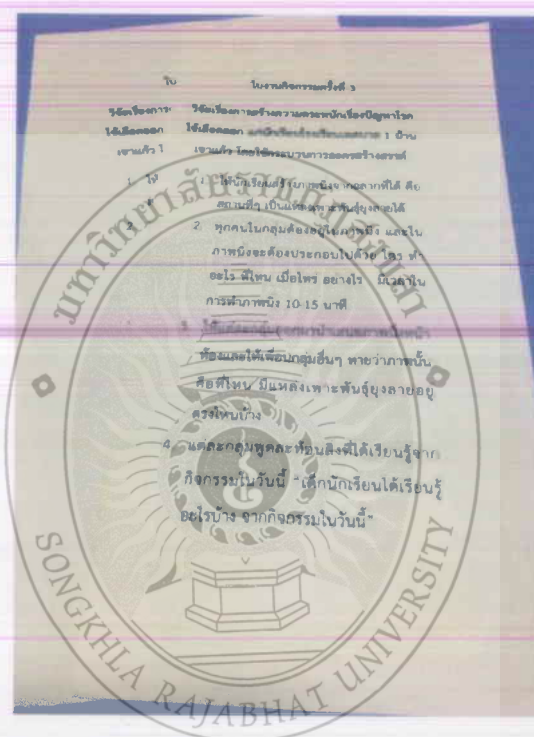 ใบ
ใบงานกิจกรรมครั้งที่ 3
วิจัยเรื่องการ
วิจัยเรื่องการสร้างความตระหนักเรื่องปัญหาโรค
ไข้เลือดออก
ไข้เลือดออก 1 บ้าน
เขาแก้ว 1
เขาแก้ว โดยใช้กระบวนการละครสร้างสรรค์
1. ให้
1. ให้นักเรียนสร้างภาพนิ่งจากฉลากที่ได้ คือ
สถานที่ๆ เป็นแหล่งเพาะพันธุ์ยุงลายได้
2.
2. ทุกคนในกลุ่มต้องอยู่ในภาพนิ่ง และใน
ภาพนิ่งจะต้องประกอบไปด้วย ใคร ทำ
อะไร ที่ไหน เมื่อไหร่ อย่างไร มีเวลาใน
การทำภาพนิ่ง 10-15 นาที
3. ให้แต่ละกลุ่มออกมานำเสนอภาพนิ่งหน้า
ห้องและให้เพื่อนกลุ่มอื่นๆ ทายว่าภาพนั้น
คือที่ไหน มีแหล่งเพาะพันธุ์ยุงลายอยู่
ตรงไหนบ้าง
4. แต่ละกลุ่มพูดสะท้อนสิ่งที่ได้เรียนรู้จาก
กิจกรรมในวันนี้ "เด็กนักเรียนได้เรียนรู้
อะไรบ้าง จากกิจกรรมในวันนี้"
มหาวิทยาลัยราชภัฏสงขลา
SONGKHLA RAJABHAT UNIVERSITY